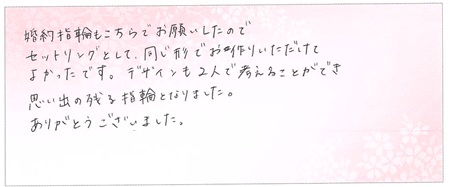 婚約指輪もこちらでお願いしたので
セットリングとして、同じ形でお作りいただけて
よかったです。デザインも2人で考えることができ
思い出の残る指輪となりました。
ありがとうございました。